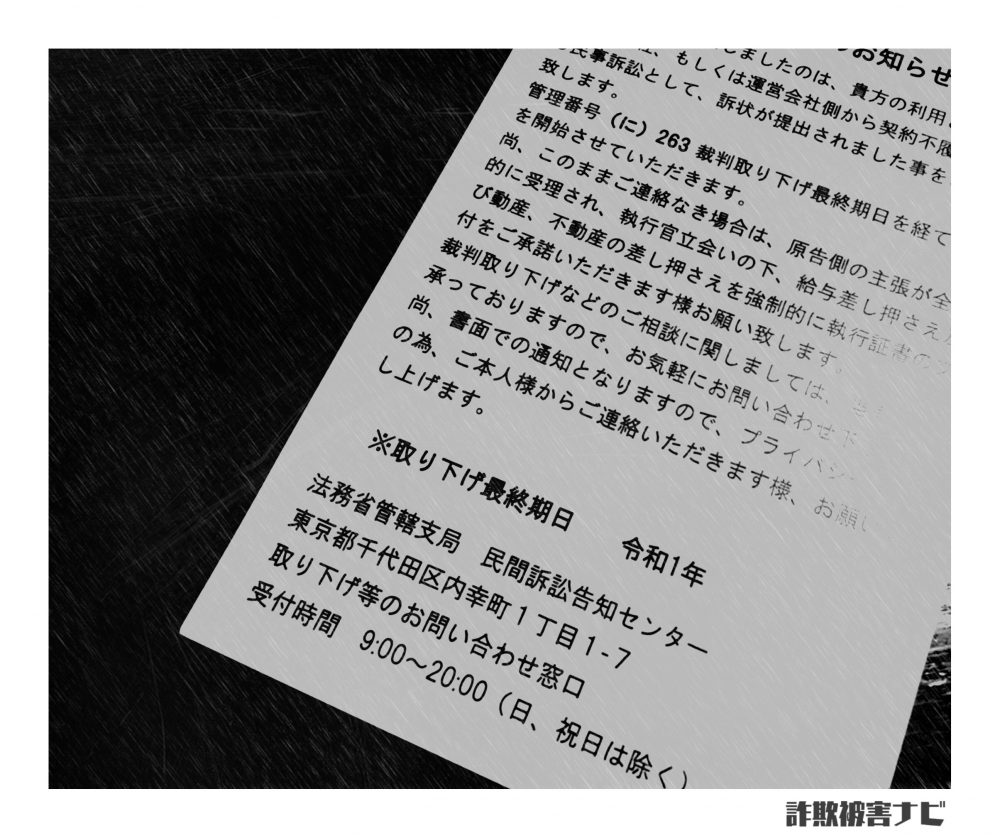 のお知らせ
しましたのは、貴方の利用
、もしくは運営会社側から契約不履
民事訴訟として、訴状が提出されました事を
致します。
管理番号（に）263 裁判取り下げ最終期日を経て
を開始させていただきます。
尚、このままご連絡なき場合は、原告側の主張が全
的に受理され、執行官立会いの下、給与差し押さえ
び動産、不動産の差し押さえを強制的に執行証書の
付をご承諾いただきます様お願い致します。
裁判取り下げなどのご相談に関しましては、
承っておりますので、お気軽にお問い合わせ下
尚、書面での通知となりますので、プライバシ
の為、ご本人様からご連絡いただきます様、お願い
し上げます。
※取り下げ最終期日　令和1年
法務省管轄支局　民間訴訟告知センター
東京都千代田区内幸町１丁目1-7
取り下げ等のお問い合わせ窓口
受付時間　9:00～20:00（日、祝日は除く）
詐欺被害ナビ